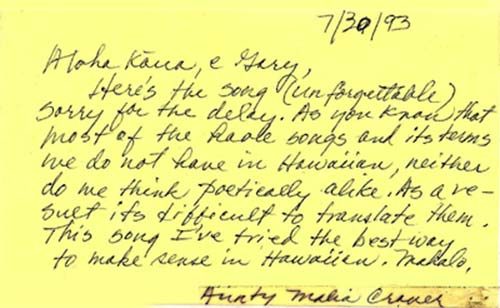 7/30/93
Aloha Kāua, e Gary,
Here's the song (unforgettable)
sorry for the delay. As you know that
most of the haole songs and its terms
we do not have in Hawaiian, neither
do we think poetically alike. As a re-
sult it's difficult to translate them.
This song I've tried the best way
to make sense in Hawaiian. Mahalo,
Aunty Malia Craver